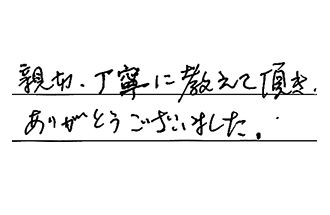 親切、丁寧に教えて頂き、
ありがとうございました。